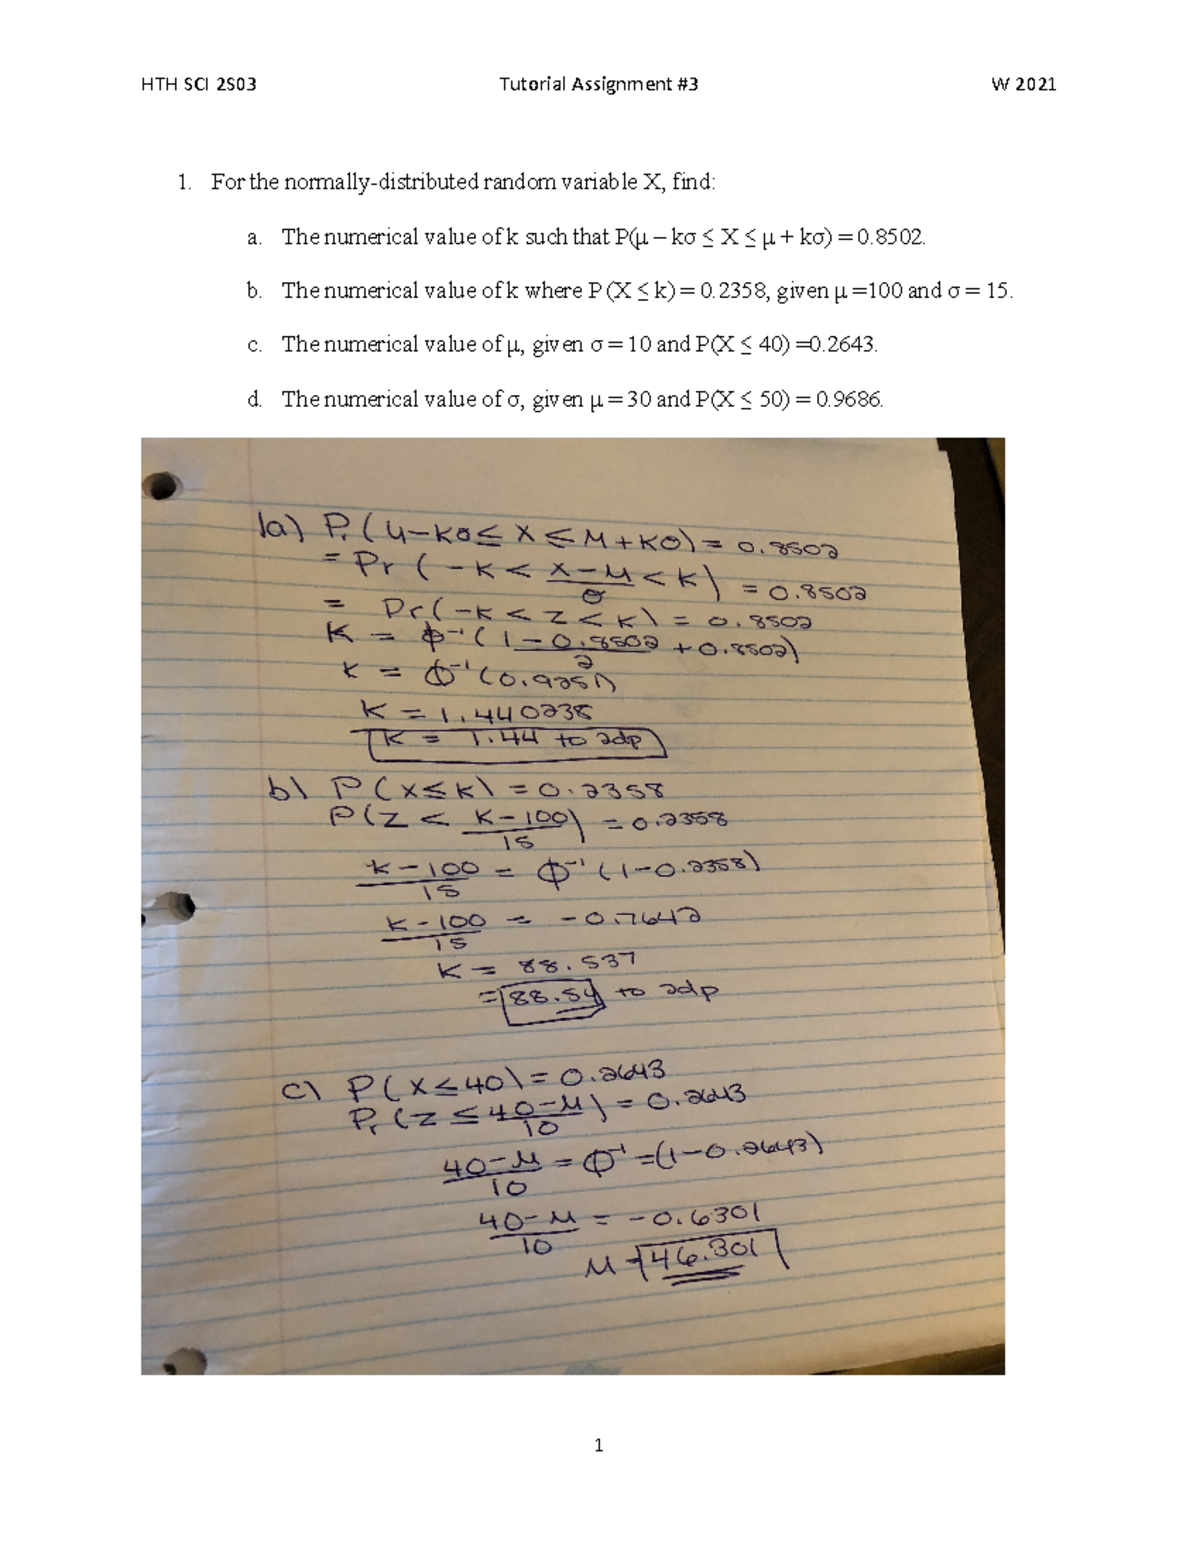 HTH SCI 2S03 Tutorial Assignment #3 W 2021
1. For the normally-distributed random variable X, find:
a. The numerical value of k such that P(μ – kσ ≤ X ≤ μ + kσ) = 0.8502.
b. The numerical value of k where P (X ≤ k) = 0.2358, given μ =100 and σ = 15.
c. The numerical value of μ, given σ = 10 and P(X ≤ 40) =0.2643.
d. The numerical value of σ, given μ = 30 and P(X ≤ 50) = 0.9686.
1a) Pr (μ-kσ ≤ X ≤ μ+kσ) = 0.8502
= Pr ( -k < (x-μ)/σ < k) = 0.8502
= Pr(-k < Z < k) = 0.8502
k = Φ⁻¹( (1-0.8502)/2 + 0.8502)
k = Φ⁻¹(0.9251)
k = 1.440238
k = 1.44 to 2dp
b) P(x≤k) = 0.2358
P(Z < (k-100)/15) = 0.2358
(k-100)/15 = Φ⁻¹(1-0.2358)
(k-100)/15 = -0.7642
k = 88.537
= 88.54 to 2dp
c) P(x≤40) = 0.2643
Pr(Z ≤ (40-μ)/10) = 0.2643
(40-μ)/10 = Φ⁻¹=(1-0.2643)
(40-μ)/10 = -0.6301
μ = 46.301
1